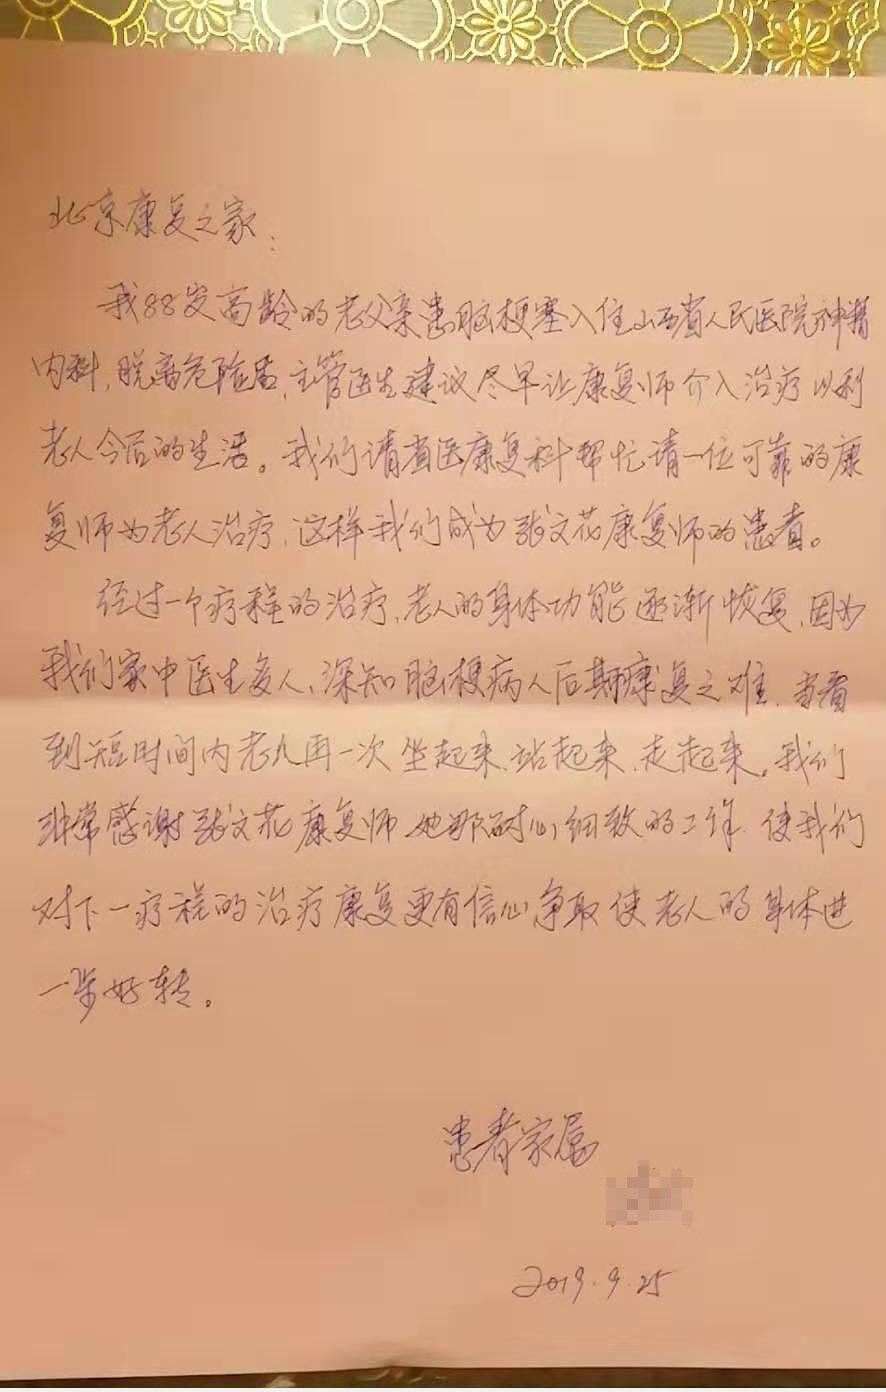 北京康复之家:
我88岁高龄的老父亲患脑梗塞入住山西省人民医院神精
内科,脱离危险后,主管医生建议尽早让康复师介入治疗以利
老人今后的生活。我们请省医康复科帮忙请一位可靠的康
复师为老人治疗,这样我们成为张文花康复师的患者。
经过一个疗程的治疗,老人的身体功能逐渐恢复,因为
我们家中医生多人,深知脑梗病人后期康复之难,当看
到短时间内老人再一次坐起来、站起来、走起来,我们
非常感谢张文花康复师她那耐心细致的工作,使我们
对下一疗程的治疗康复更有信心争取使老人的身体进
一步好转。
患者家属
2019.9.25